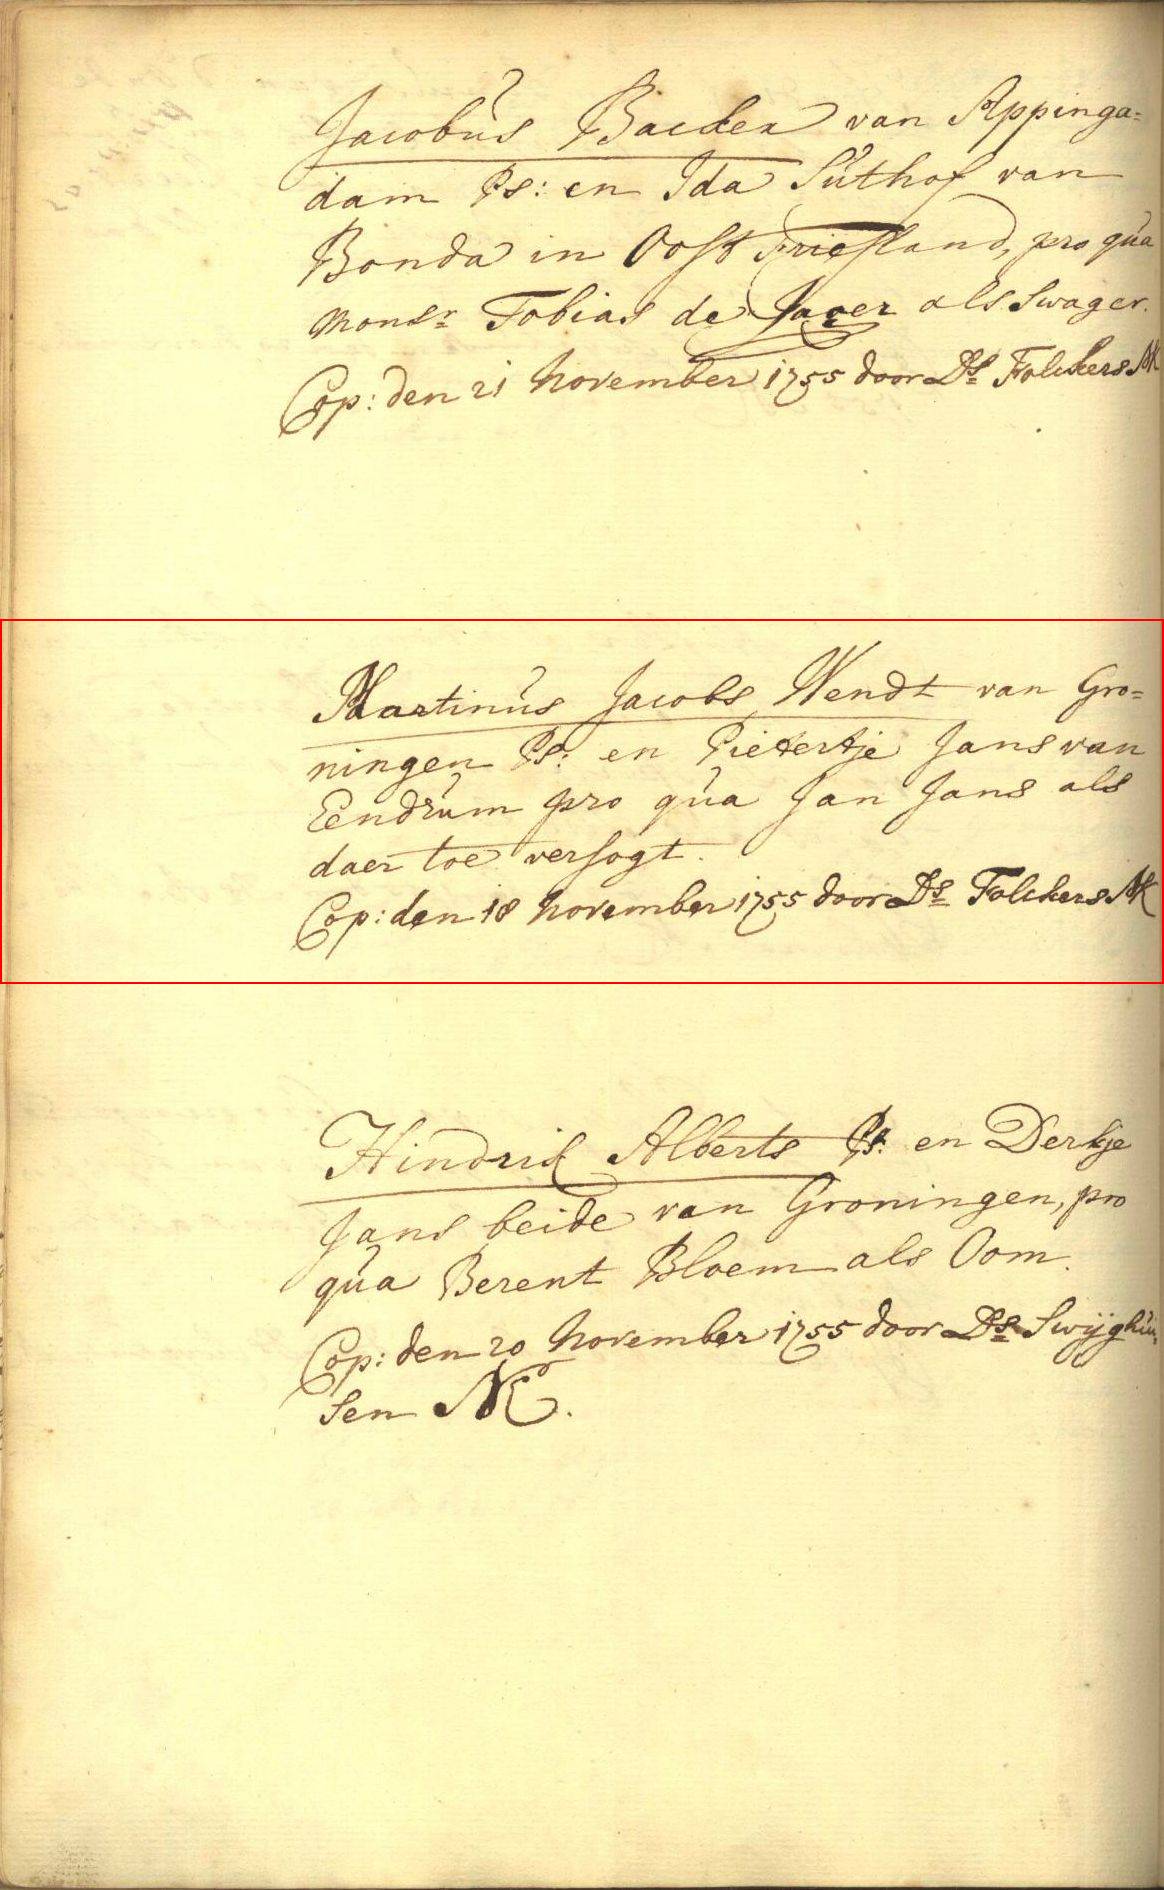 Jacobus Backer van Appinga=
dam Ps: en Ida Suthof van
Bonda in Oost Friesland, pro qua
Monsr Tobias de Jager als Swager.
Cop: den 21 November 1755 door Ds Folckers AK
Martinus Jacobs Wendt van Gro=
ningen Ps: en Pietertje Jans van
Eendrum pro qua Jan Jans als
daer toe versogt.
Cop: den 18 November 1755 door Ds Folckers AK
Hindrik Alberts Ps: en Derkje
Jans beide van Groningen, pro
qua Berent Bloem als Oom.
Cop: den 20 November 1755 door Ds Swijghui=
sen NK.